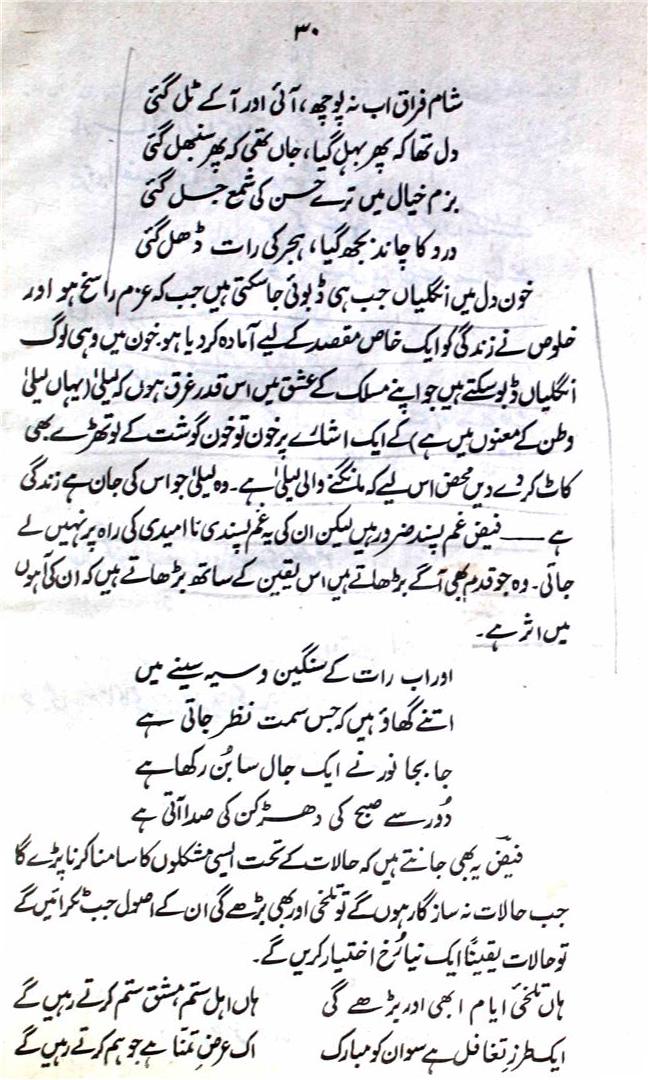 ۳۰
شام فراق اب نہ پوچھ، آئی اور آ کے ٹل گئی
دل تھا کہ پھر بہل گیا، جاں تھی کہ پھر سنبھل گئی
بزم خیال میں ترے حسن کی شمع جل گئی
درد کا چاند بجھ گیا، ہجر کی رات ڈھل گئی
خون دل میں انگلیاں جب ہی ڈبوئی جا سکتی ہیں جب کہ عزم راسخ ہو اور
خلوص نے زندگی کو ایک خاص مقصد کے لیے آمادہ کر دیا ہو۔ خون میں وہی لوگ
انگلیاں ڈبو سکتے ہیں جو اپنے مسلک کے عشق میں اس قدر غرق ہوں کہ لیلیٰ (یہاں لیلیٰ
وطن کے معنوں میں ہے) کے ایک اشارے پر خون تو خون گوشت کے لوتھڑے بھی
کاٹ کر دے دیں محض اس لیے کہ مانگنے والی لیلیٰ ہے۔ وہ لیلیٰ جو اس کی جان ہے زندگی
ہے —— فیض غم پسند ضرور ہیں لیکن ان کی یہ غم پسندی نا امیدی کی راہ پر نہیں لے
جاتی۔ وہ جو قدم بھی آگے بڑھاتے ہیں اس یقین کے ساتھ بڑھاتے ہیں کہ ان کی آہوں
میں اثر ہے۔
اور اب رات کے سنگین و سیہ سینے میں
اتنے گھاؤ ہیں کہ جس سمت نظر جاتی ہے
جا بجا نور نے ایک جال سا بُن رکھا ہے
دُور سے صبح کی دھڑکن کی صدا آتی ہے
فیضؔ یہ بھی جانتے ہیں کہ حالات کے تحت ایسی مشکلوں کا سامنا کرنا پڑے گا
جب حالات نہ ساز گار ہوں گے تو تلخی اور بھی بڑھے گی ان کے اصول جب ٹکرائیں گے
تو حالات یقیناً ایک نیا رُخ اختیار کریں گے۔
ہاں تلخیٔ ایام ابھی اور بڑھے گی ہاں اہل ستم مشق ستم کرتے رہیں گے
ایک طرزِ تغافل ہے سو ان کو مبارک اک عرضِ تمنّا ہے جو ہم کرتے رہیں گے